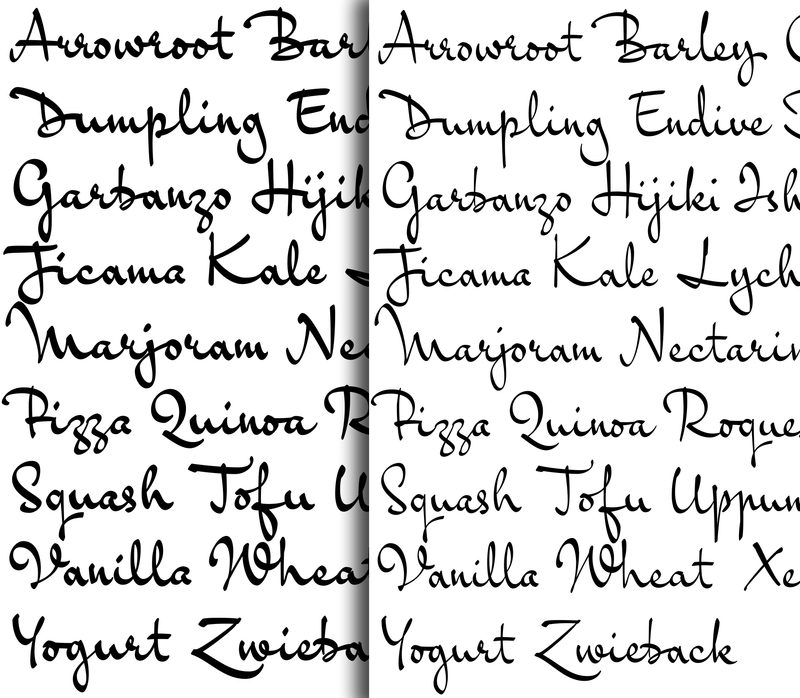 Arrowroot Barl
Dumpling End
Garbanzo Hijik
Jicama Kale
Marjoram Nec
Pizza Quinoa R
Squash Tofu U
Vanilla Wheat
Yogurt Zwieba
Arrowroot Barley
Dumpling Endive S
Garbanzo Hijiki Ish
Jicama Kale Lych
Marjoram Nectarin
Pizza Quinoa Roque
Squash Tofu Uppum
Vanilla Wheat Xe
Yogurt Zwieback